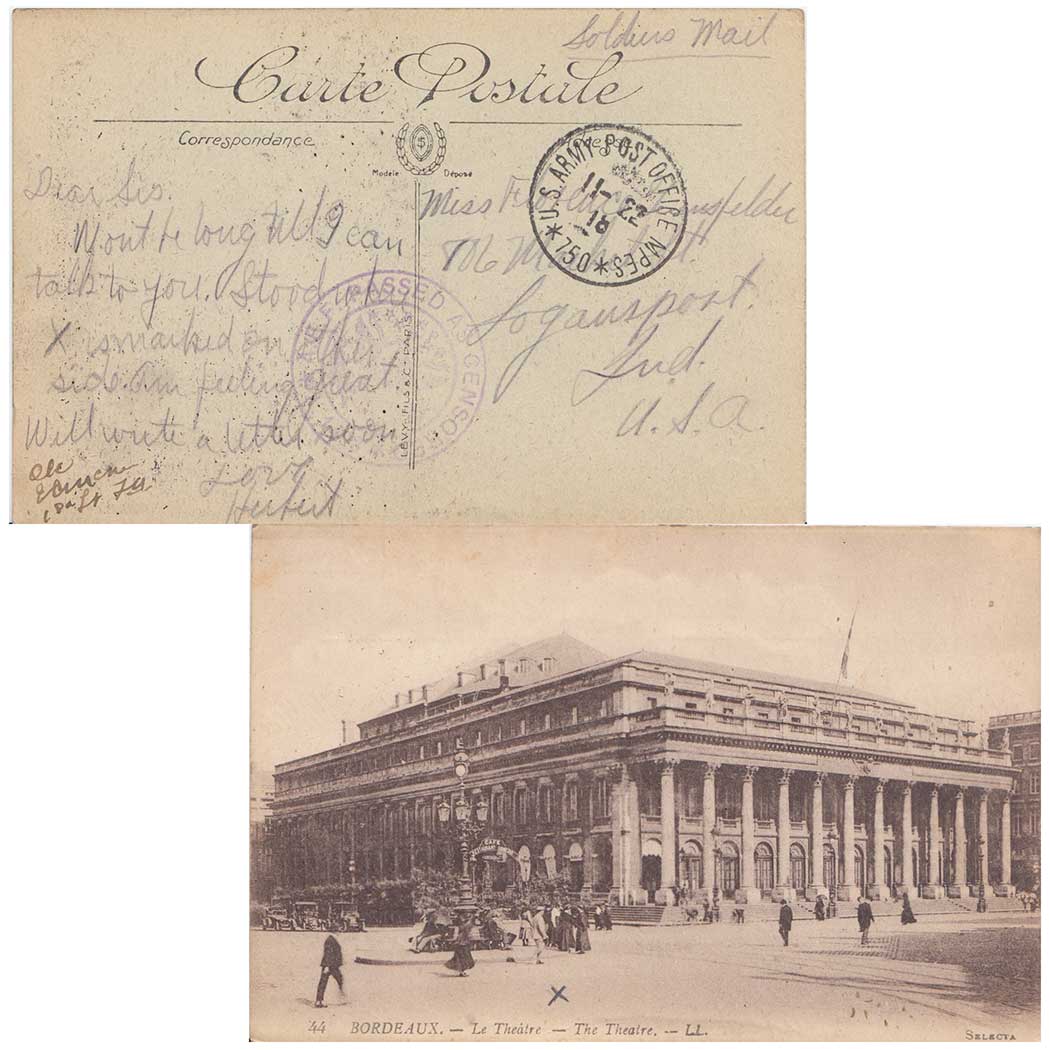 Soldiers Mail
Carte Postale
Correspondance
Modèle Déposé
Dear Sis.
Wont be long till I can
talk to you. Stood where
X is marked on other
side Am feeling great
Will write a letter soon
Love
Herbert
Miss
706
Logansport.
Ind.
U.S.A.
U.S. ARMY POST OFFICE MPES
11-22
18
*750*
PASSED AS CENSORED
LÉVY FILS & Cie PARIS
1st Lt
CAFE
RESTAURANT
X
44 BORDEAUX. — Le Théâtre — The Theatre. — LL.
SELECTA